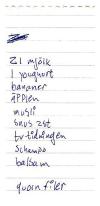 2 l mjölk
1 youghurt
bananer
äpplen
musli
snus 2st
tvtidningen
schampo
balsam
quorn filer